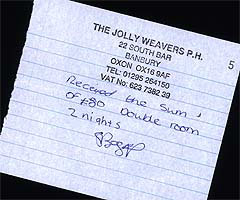 5
THE JOLLY WEAVERS P.H.
22 SOUTH BAR
BANBURY
OXON OX16 9AF
TEL: 01295 264150
VAT No: 623 7382 39
Received the sum
of £80 Double room
2 nights